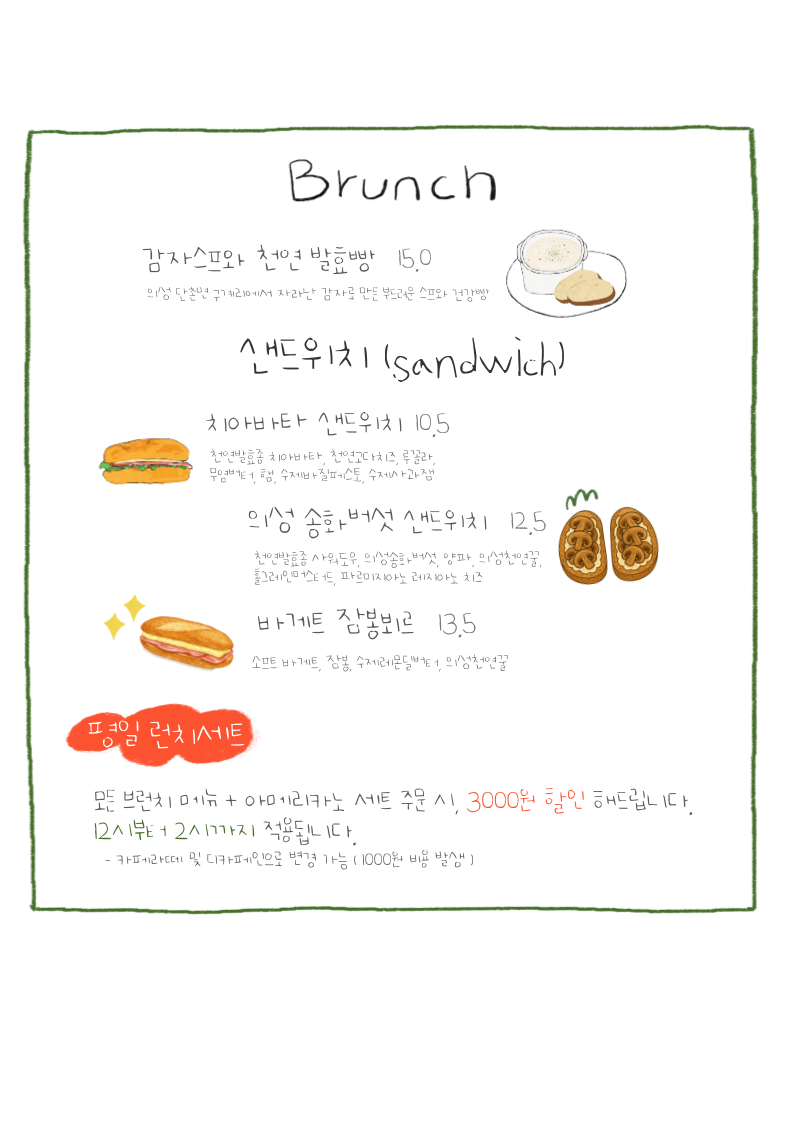 Brunch
감자스프와 천연 발효빵 15.0
의성 단촌면 구계리에서 자라난 감자로 만든 부드러운 스프와 건강빵
샌드위치 (sandwich)
치아바타 샌드위치 10.5
천연발효종 치아바타, 천연고다치즈, 루꼴라,
무염버터, 햄, 수제바질페스토, 수제사과잼
의성 송화버섯 샌드위치 12.5
천연발효종 사워도우, 의성송화버섯, 양파, 의성천연꿀,
홀그레인머스터드, 파르미지아노 레지아노 치즈
바게트 잠봉뵈르 13.5
소프트 바게트, 잠봉, 수제레몬딜버터, 의성천연꿀
평일 런치세트
모든 브런치 메뉴 + 아메리카노 세트 주문 시, 3000원 할인 해드립니다.
12시부터 2시까지 적용됩니다.
- 카페라떼 및 디카페인으로 변경 가능 (1000원 비용 발생)